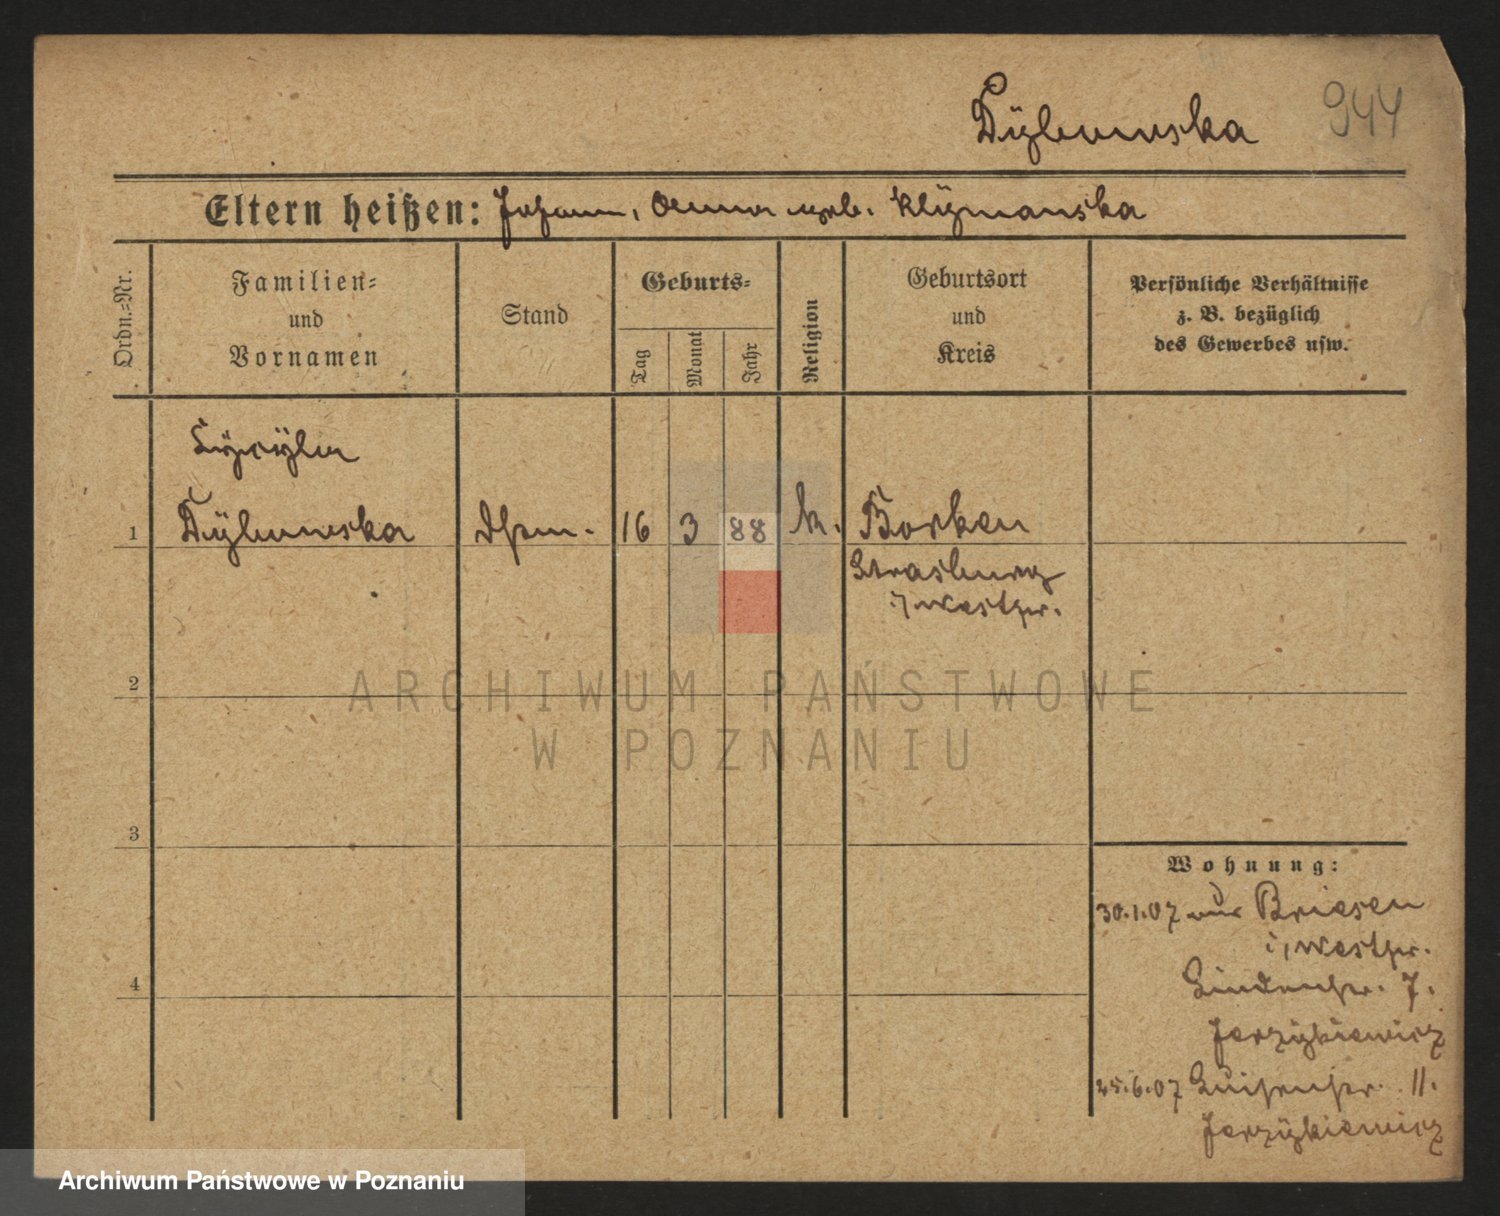 Dÿbowska
944
Eltern heißen: Johann, Anna geb. Klÿmanska
Ordn.-Nr.
Familien- und Vornamen
Stand
Geburts-
Tag
Monat
Jahr
Religion
Geburtsort und Kreis
Persönliche Verhältnisse z. B. bezüglich des Gewerbes usw.
1
Dÿbowska
16
3
88
k.
Borken
Strasburg
i/Westpr.
2
ARCHIWUM PAŃSTWOWE
W POZNANIU
3
Wohnung:
30.1.07 aus Briesen
i/Westpr.
4
Lindenstr. 7.
Jerzÿkiewicz
25.6.07 Luisenstr. 11.
Jerzÿkiewicz
Archiwum Państwowe w Poznaniu